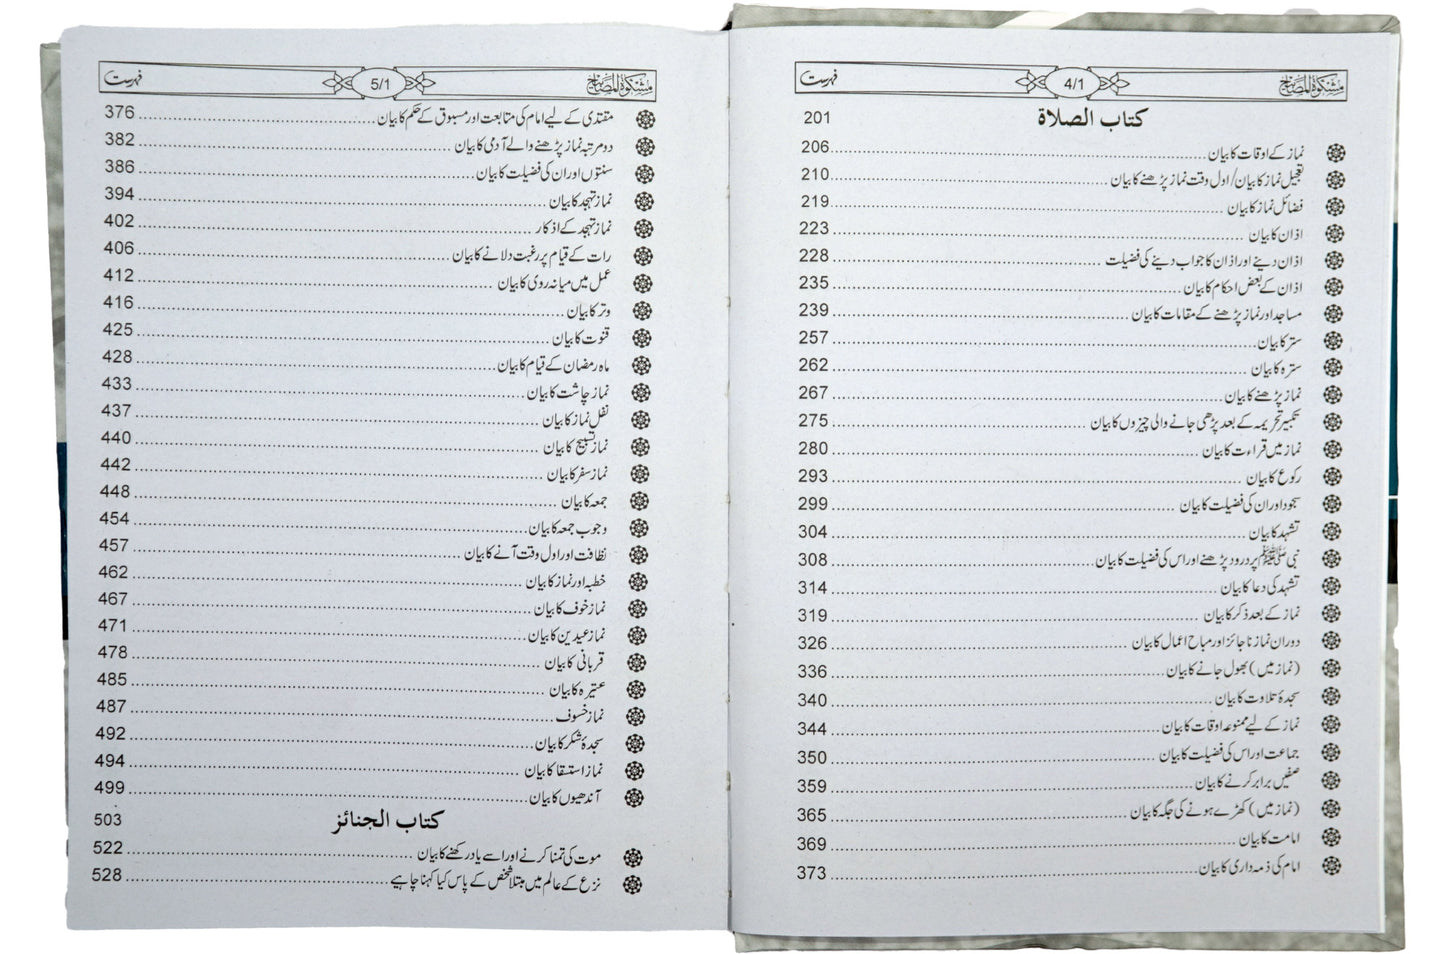 مشکوٰۃ المصابیح 4/1 فہرست
کتاب الصلاة 201
نماز کے اوقات کا بیان 206
تعجیل نماز کا بیان/اول وقت نماز پڑھنے کا بیان 210
فضائل نماز کا بیان 219
اذان کا بیان 223
اذان دینے اور اذان کا جواب دینے کی فضیلت 228
اذان کے بعض احکام کا بیان 235
مساجد اور نماز پڑھنے کے مقامات کا بیان 239
ستر کا بیان 257
سترہ کا بیان 262
نماز پڑھنے کا بیان 267
تکبیر تحریمہ کے بعد پڑھی جانے والی چیزوں کا بیان 275
نماز میں قراءت کا بیان 280
رکوع کا بیان 293
سجود اور ان کی فضیلت کا بیان 299
تشہد کا بیان 304
نبی ﷺ پر درود پڑھنے اور اس کی فضیلت کا بیان 308
تشہد کی دعا کا بیان 314
نماز کے بعد ذکر کا بیان 319
دوران نماز ناجائز اور مباح اعمال کا بیان 326
(نماز میں) بھول جانے کا بیان 336
سجدۂ تلاوت کا بیان 340
نماز کے لیے ممنوعہ اوقات کا بیان 344
جماعت اور اس کی فضیلت کا بیان 350
صفیں برابر کرنے کا بیان 359
(نماز میں) کھڑے ہونے کی جگہ کا بیان 365
امامت کا بیان 369
امام کی ذمہ داری کا بیان 373
مشکوٰۃ المصابیح 5/1 فہرست
مقتدی کے لیے امام کی متابعت اور مسبوق کے حکم کا بیان 376
دو مرتبہ نماز پڑھنے والے آدمی کا بیان 382
سنتوں اور ان کی فضیلت کا بیان 386
نماز تہجد کا بیان 394
نماز تہجد کے اذکار 402
رات کے قیام پر رغبت دلانے کا بیان 406
عمل میں میانہ روی کا بیان 412
وتر کا بیان 416
قنوت کا بیان 425
ماہ رمضان کے قیام کا بیان 428
نماز چاشت کا بیان 433
نفل نماز کا بیان 437
نماز تسبیح کا بیان 440
نماز سفر کا بیان 442
جمعہ کا بیان 448
وجوب جمعہ کا بیان 454
نظافت اور اول وقت آنے کا بیان 457
خطبہ اور نماز کا بیان 462
نماز خوف کا بیان 467
نماز عیدین کا بیان 471
قربانی کا بیان 478
عتیرہ کا بیان 485
نماز خسوف 487
سجدۂ شکر کا بیان 492
نماز استسقا کا بیان 494
آندھیوں کا بیان 499
کتاب الجنائز 503
موت کی تمنا کرنے اور اسے یاد رکھنے کا بیان 522
نزع کے عالم میں مبتلا شخص کے پاس کیا کہنا چاہیے 528